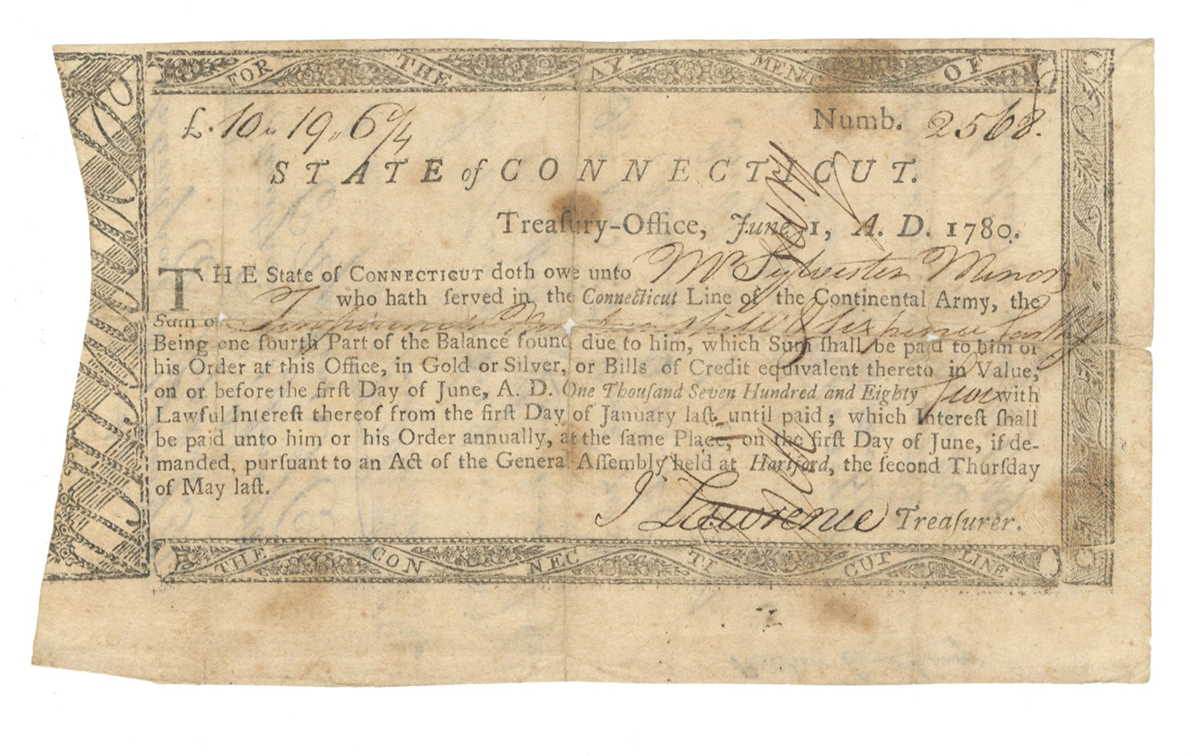 FOR THE PAYMENT OF
£. 10 " 19 " 6 1/4 Numb. 2568.
STATE of CONNECTICUT.
Treaſury-Office, June 1, A. D. 1780.
THE State of CONNECTICUT doth owe unto Mr Sylvester Minor
who hath ſerved in the Connecticut Line of the Continental Army, the
Sum of Ten pounds
Being one fourth Part of the Balance found due to him, which Sum ſhall be paid to him or
his Order at this Office, in Gold or Silver, or Bills of Credit equivalent thereto in Value,
on or before the firſt Day of June, A. D. One Thouſand Seven Hundred and Eighty five with
Lawful Intereſt thereof from the firſt Day of January laſt until paid; which Intereſt ſhall
be paid unto him or his Order annually, at the ſame Place, on the firſt Day of June, if de-
manded, purſuant to an Act of the General Aſſembly held at Hartford, the ſecond Thurſday
of May laſt.
J Lawrence Treaſurer.
THE CON NEC TI CUT LINE